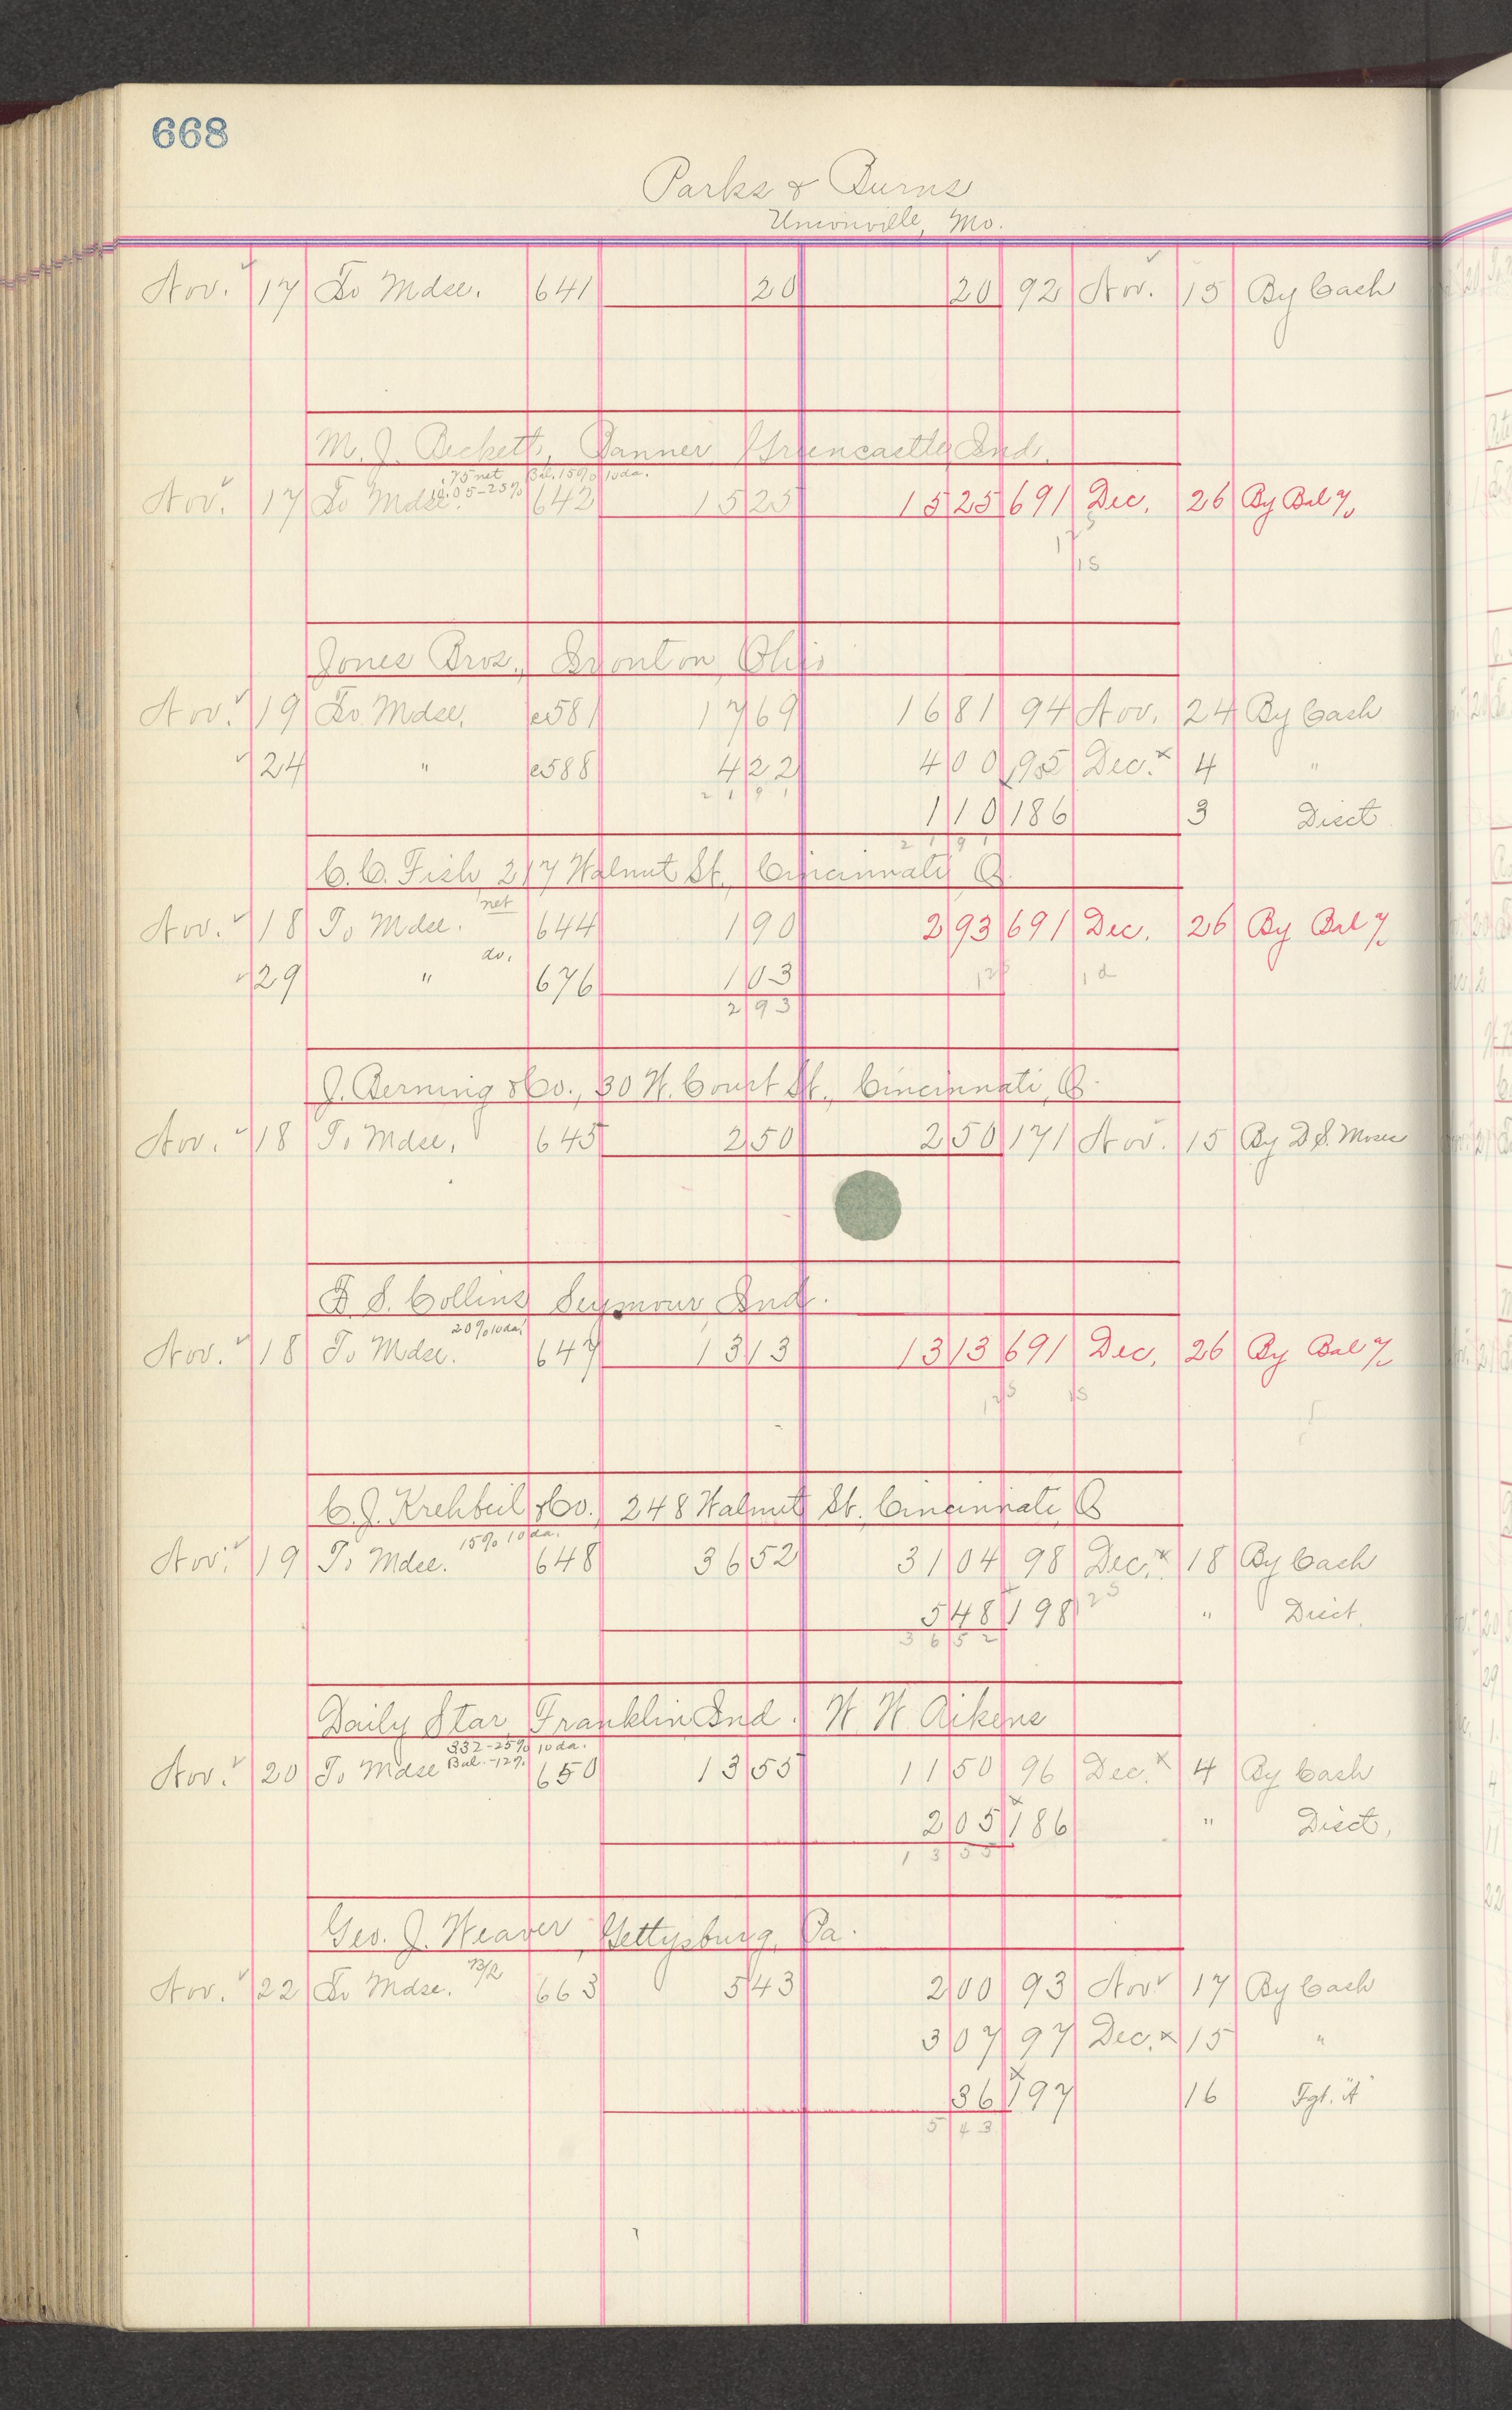 668
Parks & Burns
Unionville, Mo.
Nov. 17 To Mdse. 641 20 20 92 Nov. 15 By Cash
M. J. Beckett, Banner Greencastle Ind.
.75 net Bal. 15% 10 da.
Nov. 17 To Mdse. 642 15 25 15 25 691 Dec. 26 By Bal %
15
Jones Bros., Ironton, Ohio
Nov. 19 To Mdse. e581 17 69 16 81 94 Nov. 24 By Cash
24 " e588 4 22 4 00 95 Dec. x 4 "
2 1 9 1
1 10 186 3 Disct
2 1 9 1
C. C. Fish, 217 Walnut St., Cincinnati, O.
net
Nov. 18 To Mdse. 644 1 90 2 93 691 Dec. 26 By Bal %
do.
29 " 676 1 03
2 93
J. Berning & Co., 30 W. Court St., Cincinnati, O.
Nov. 18 To Mdse. 645 2 50 2 50 171 Nov. 15 By D. S. Moses
S. Collins Seymour Ind.
20% 10 da.
Nov. 18 To Mdse. 647 13 13 13 13 691 Dec. 26 By Bal %
C. J. Krehbiel & Co., 248 Walnut St. Cincinnati O
15% 10 da.
Nov. 19 To Mdse. 648 36 52 31 04 98 Dec. x 18 By Cash
5 48 198 " Disct.
3 6 5 2
Daily Star, Franklin Ind. W. W. Aikens
332-25% 10 da.
Bal.-12%
Nov. 20 To Mdse 650 13 55 11 50 96 Dec. x 4 By Cash
2 05 186 " Disct.
1 3 5 5
Geo. J. Weaver, Gettysburg, Pa.
Nov. 22 To Mdse. 663 5 43 2 00 93 Nov 17 By Cash
3 07 97 Dec. x 15 "
36 197 16 Fgt. "A"
5 4 3